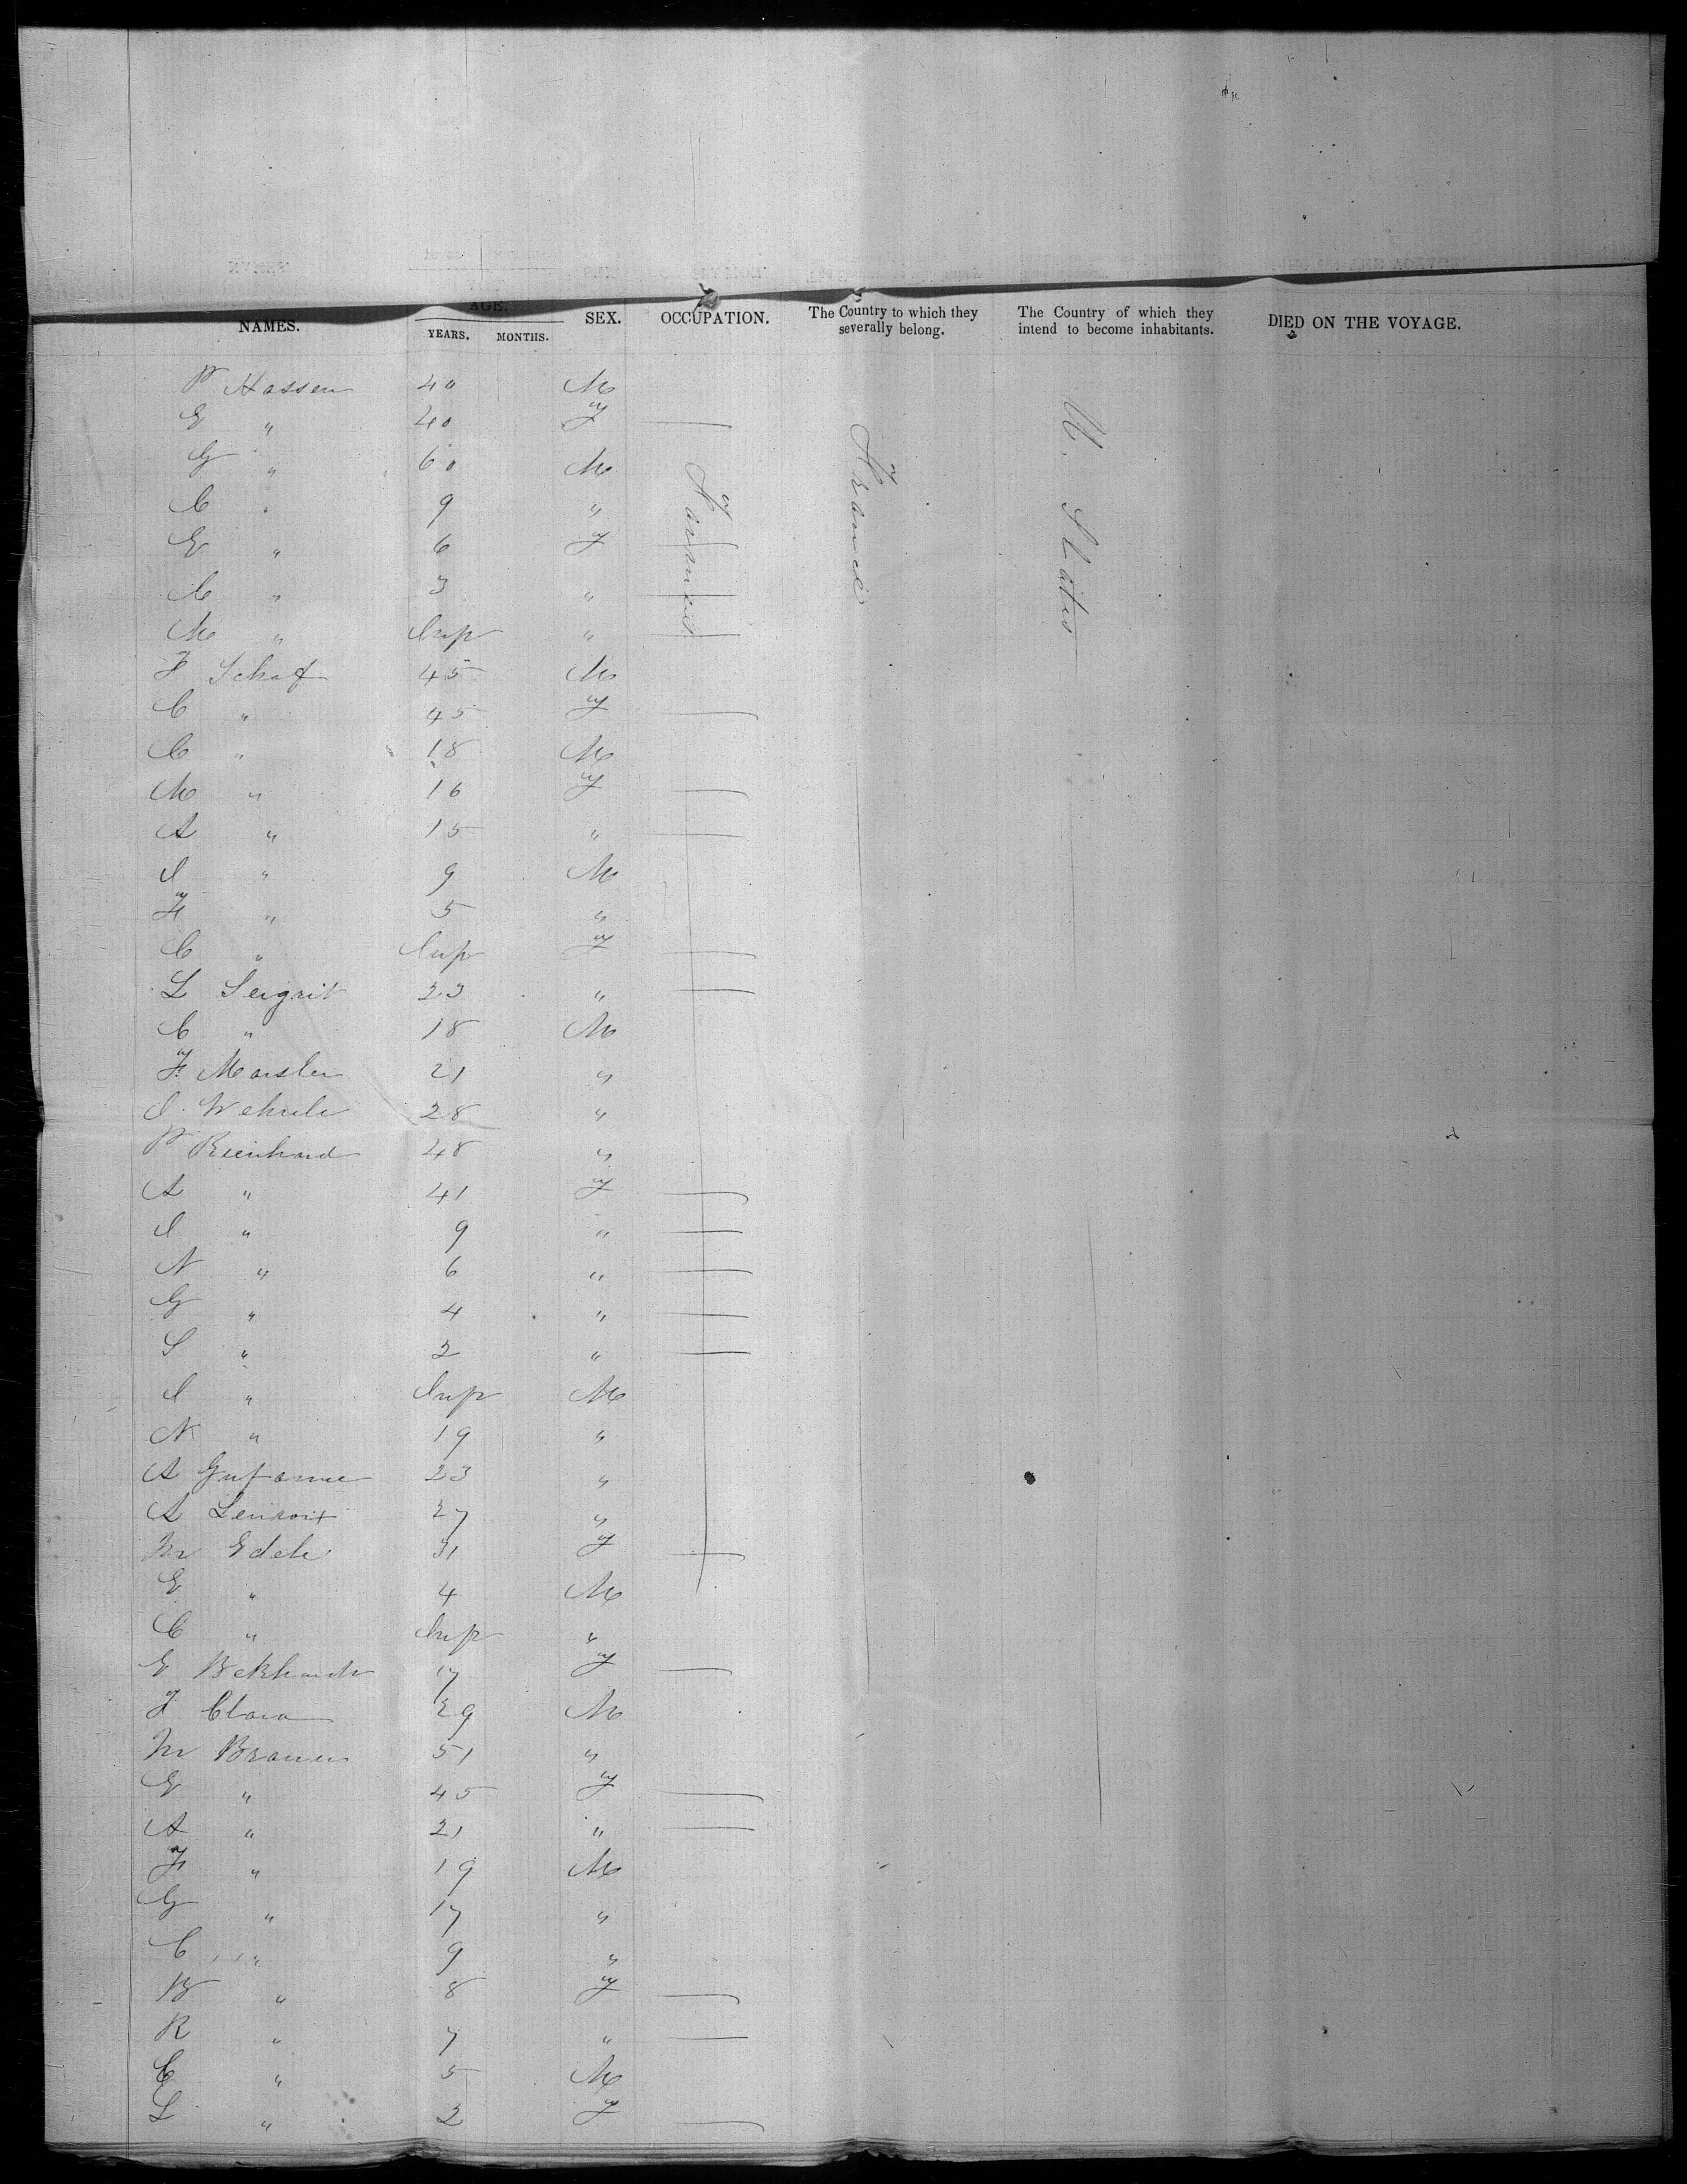 NAMES. AGE. YEARS. MONTHS. SEX. OCCUPATION. The Country to which they severally belong. The Country of which they intend to become inhabitants. DIED ON THE VOYAGE.
P Hassen 40 M
E " 40 F
G " 60 M
C " 9 "
E " 6 F
C " 3 "
M " Inf "
Farmers
France
U. States
F Schaf 45 M
C " 45 F
C " 18 M
M " 16 F
A " 15 "
I " 9 M
F " 5 "
C " Inf F
L Seigrit 23 "
C " 18 M
F Marsler 21 "
I Wehrle 28 "
P Reinhard 48 "
A " 41 F
I " 9 "
N " 6 "
G " 4 "
S " 2 "
I " Inf M
N " 19 "
A 23 "
A 27 "
M Edele 31 F
E " 4 M
C " Inf "
E 17 F
F Clara 29 M
M Braun 51 "
E " 45 F
A " 21 "
F " 19 M
G " 17 "
C " 9 "
B " 8 F
R " 7 "
C " 5 M
L " 2 F